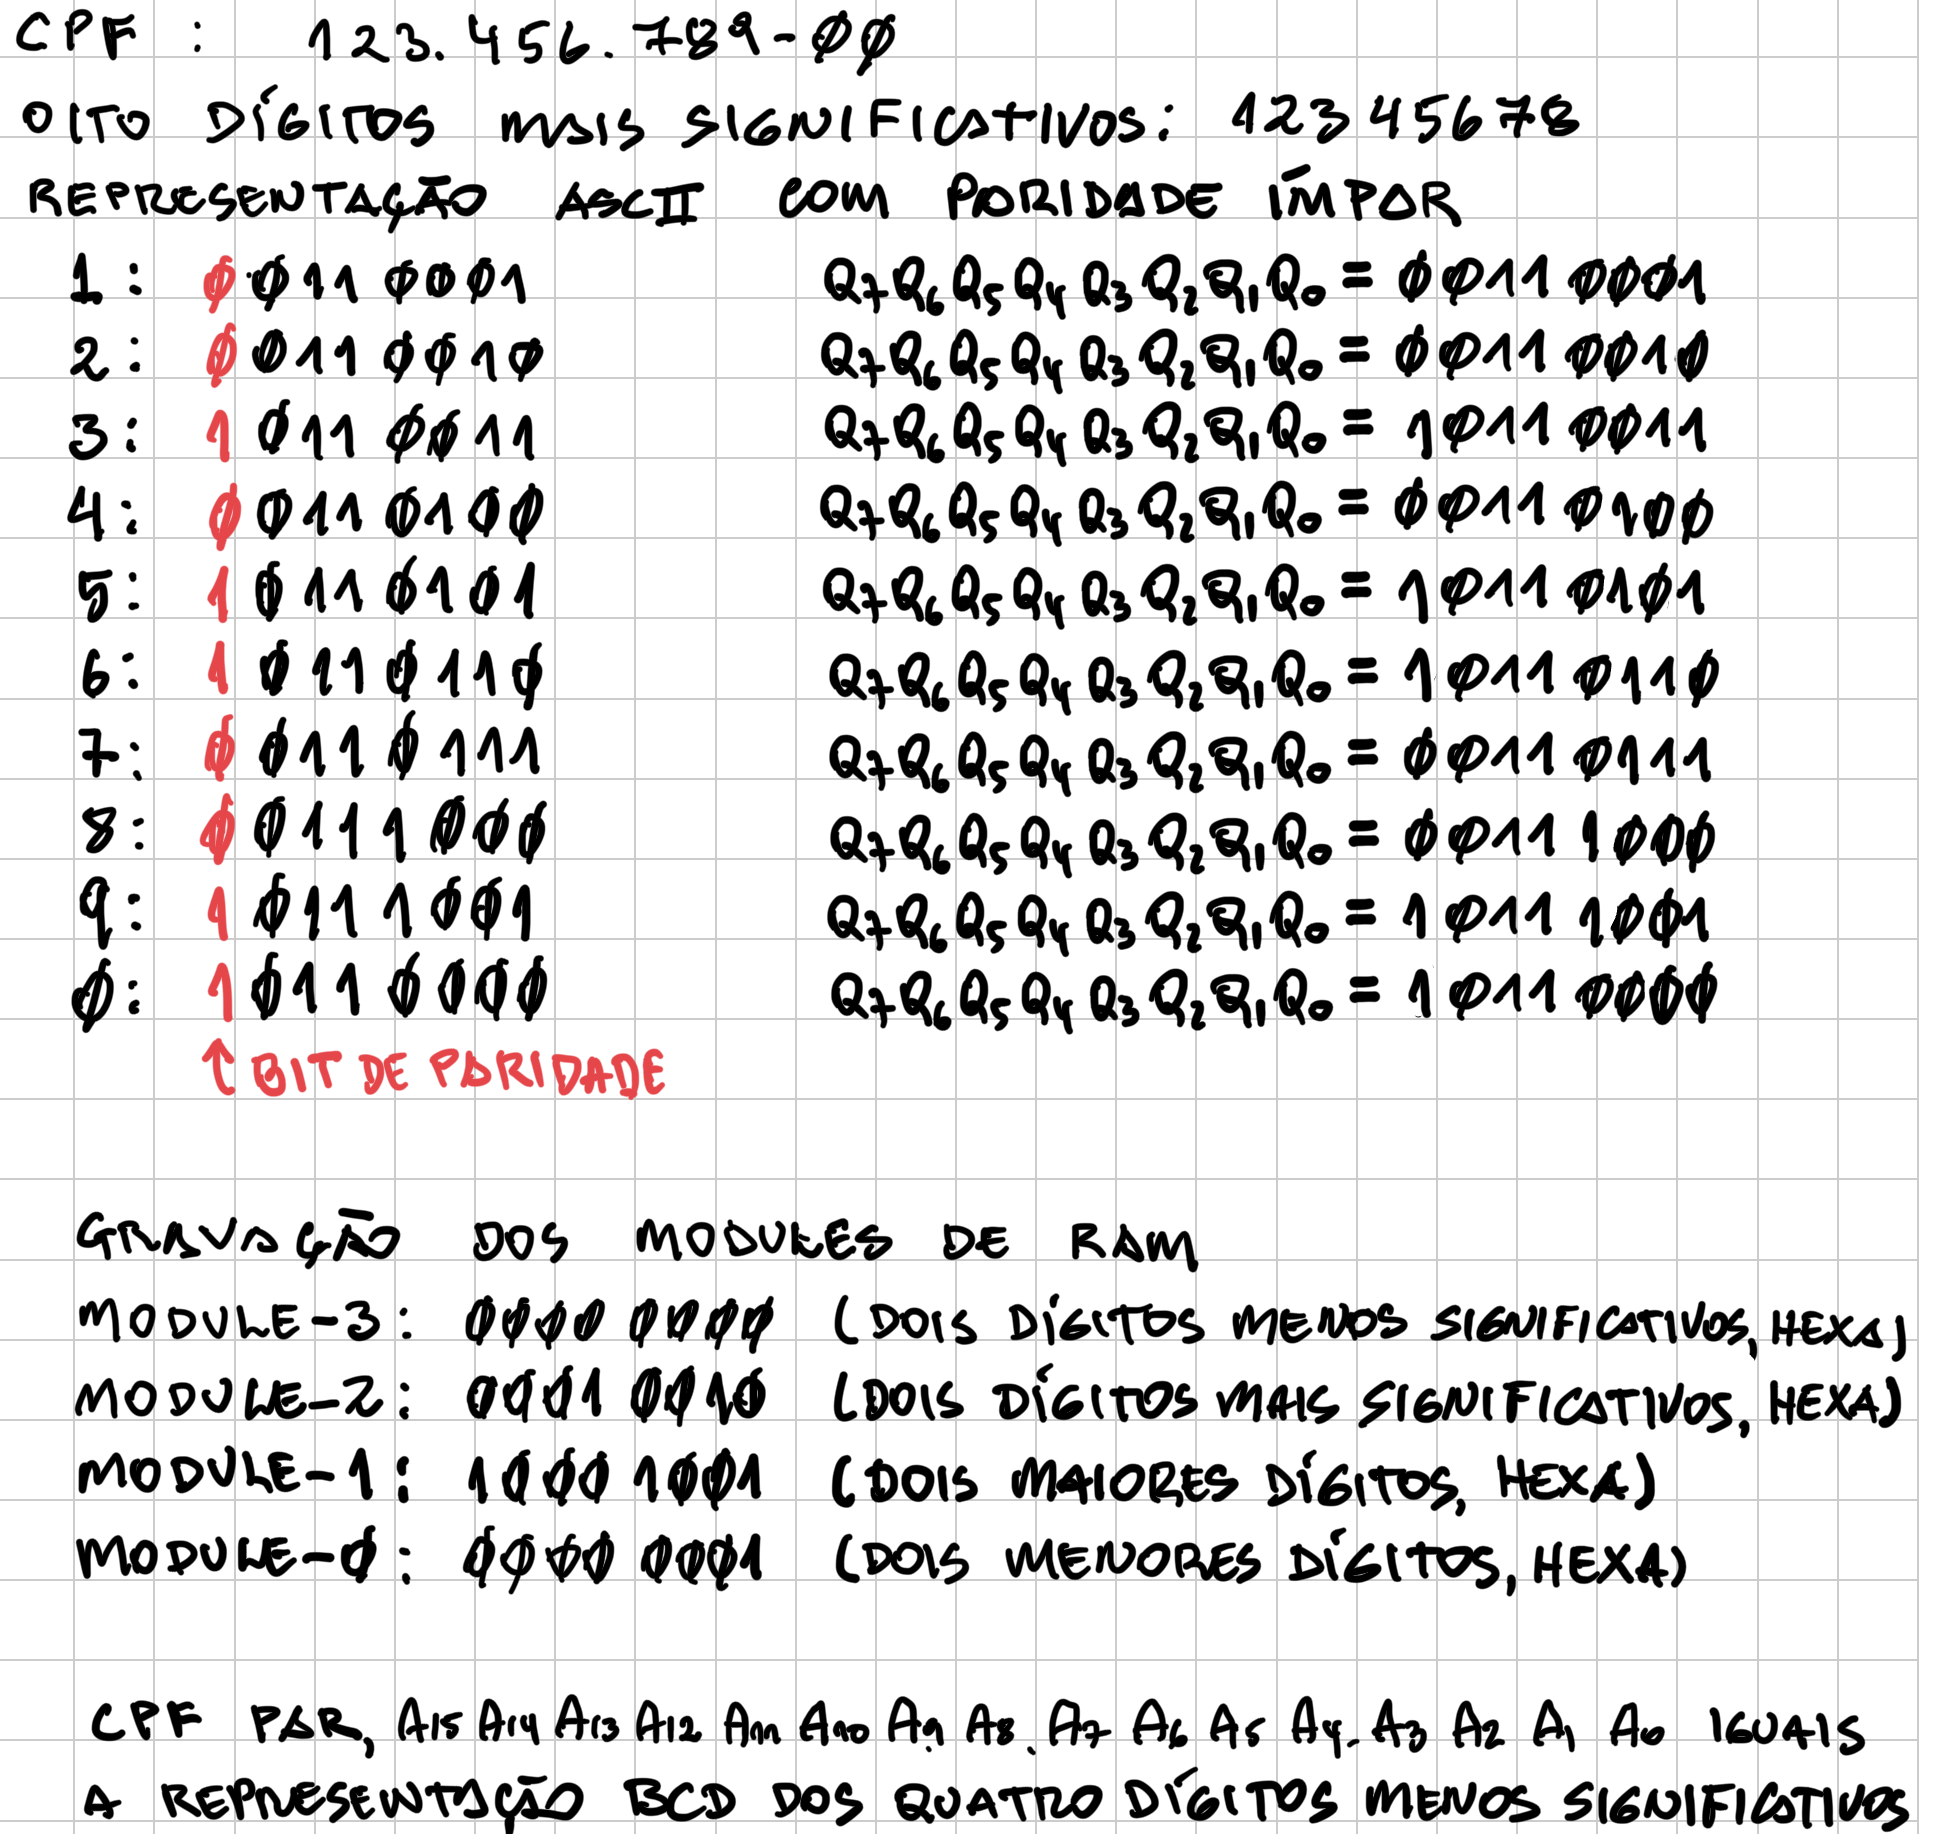 CPF : 123.456.789-00
OITO DÍGITOS MAIS SIGNIFICATIVOS: 12345678
REPRESENTAÇÃO ASCII COM PARIDADE ÍMPAR
1: 0 011 0001 Q7Q6Q5Q4Q3Q2Q1Q0 = 0011 0001
2: 0 011 0010 Q7Q6Q5Q4Q3Q2Q1Q0 = 0011 0010
3: 1 011 0011 Q7Q6Q5Q4Q3Q2Q1Q0 = 1011 0011
4: 0 011 0100 Q7Q6Q5Q4Q3Q2Q1Q0 = 0011 0100
5: 1 011 0101 Q7Q6Q5Q4Q3Q2Q1Q0 = 1011 0101
6: 1 011 0110 Q7Q6Q5Q4Q3Q2Q1Q0 = 1011 0110
7: 0 011 0111 Q7Q6Q5Q4Q3Q2Q1Q0 = 0011 0111
8: 0 011 1000 Q7Q6Q5Q4Q3Q2Q1Q0 = 0011 1000
9: 1 011 1001 Q7Q6Q5Q4Q3Q2Q1Q0 = 1011 1001
0: 1 011 0000 Q7Q6Q5Q4Q3Q2Q1Q0 = 1011 0000
↑ BIT DE PARIDADE
GRAVAÇÃO DOS MODULES DE RAM
MODULE-3: 0000 0000 (DOIS DÍGITOS MENOS SIGNIFICATIVOS, HEXA)
MODULE-2: 0001 0010 (DOIS DÍGITOS MAIS SIGNIFICATIVOS, HEXA)
MODULE-1: 1000 1001 (DOIS MAIORES DÍGITOS, HEXA)
MODULE-0: 0000 0001 (DOIS MENORES DÍGITOS, HEXA)
CPF PAR, A15 A14 A13 A12 A11 A10 A9 A8 A7 A6 A5 A4 A3 A2 A1 A0 IGUAIS
A REPRESENTAÇÃO BCD DOS QUATRO DÍGITOS MENOS SIGNIFICATIVOS